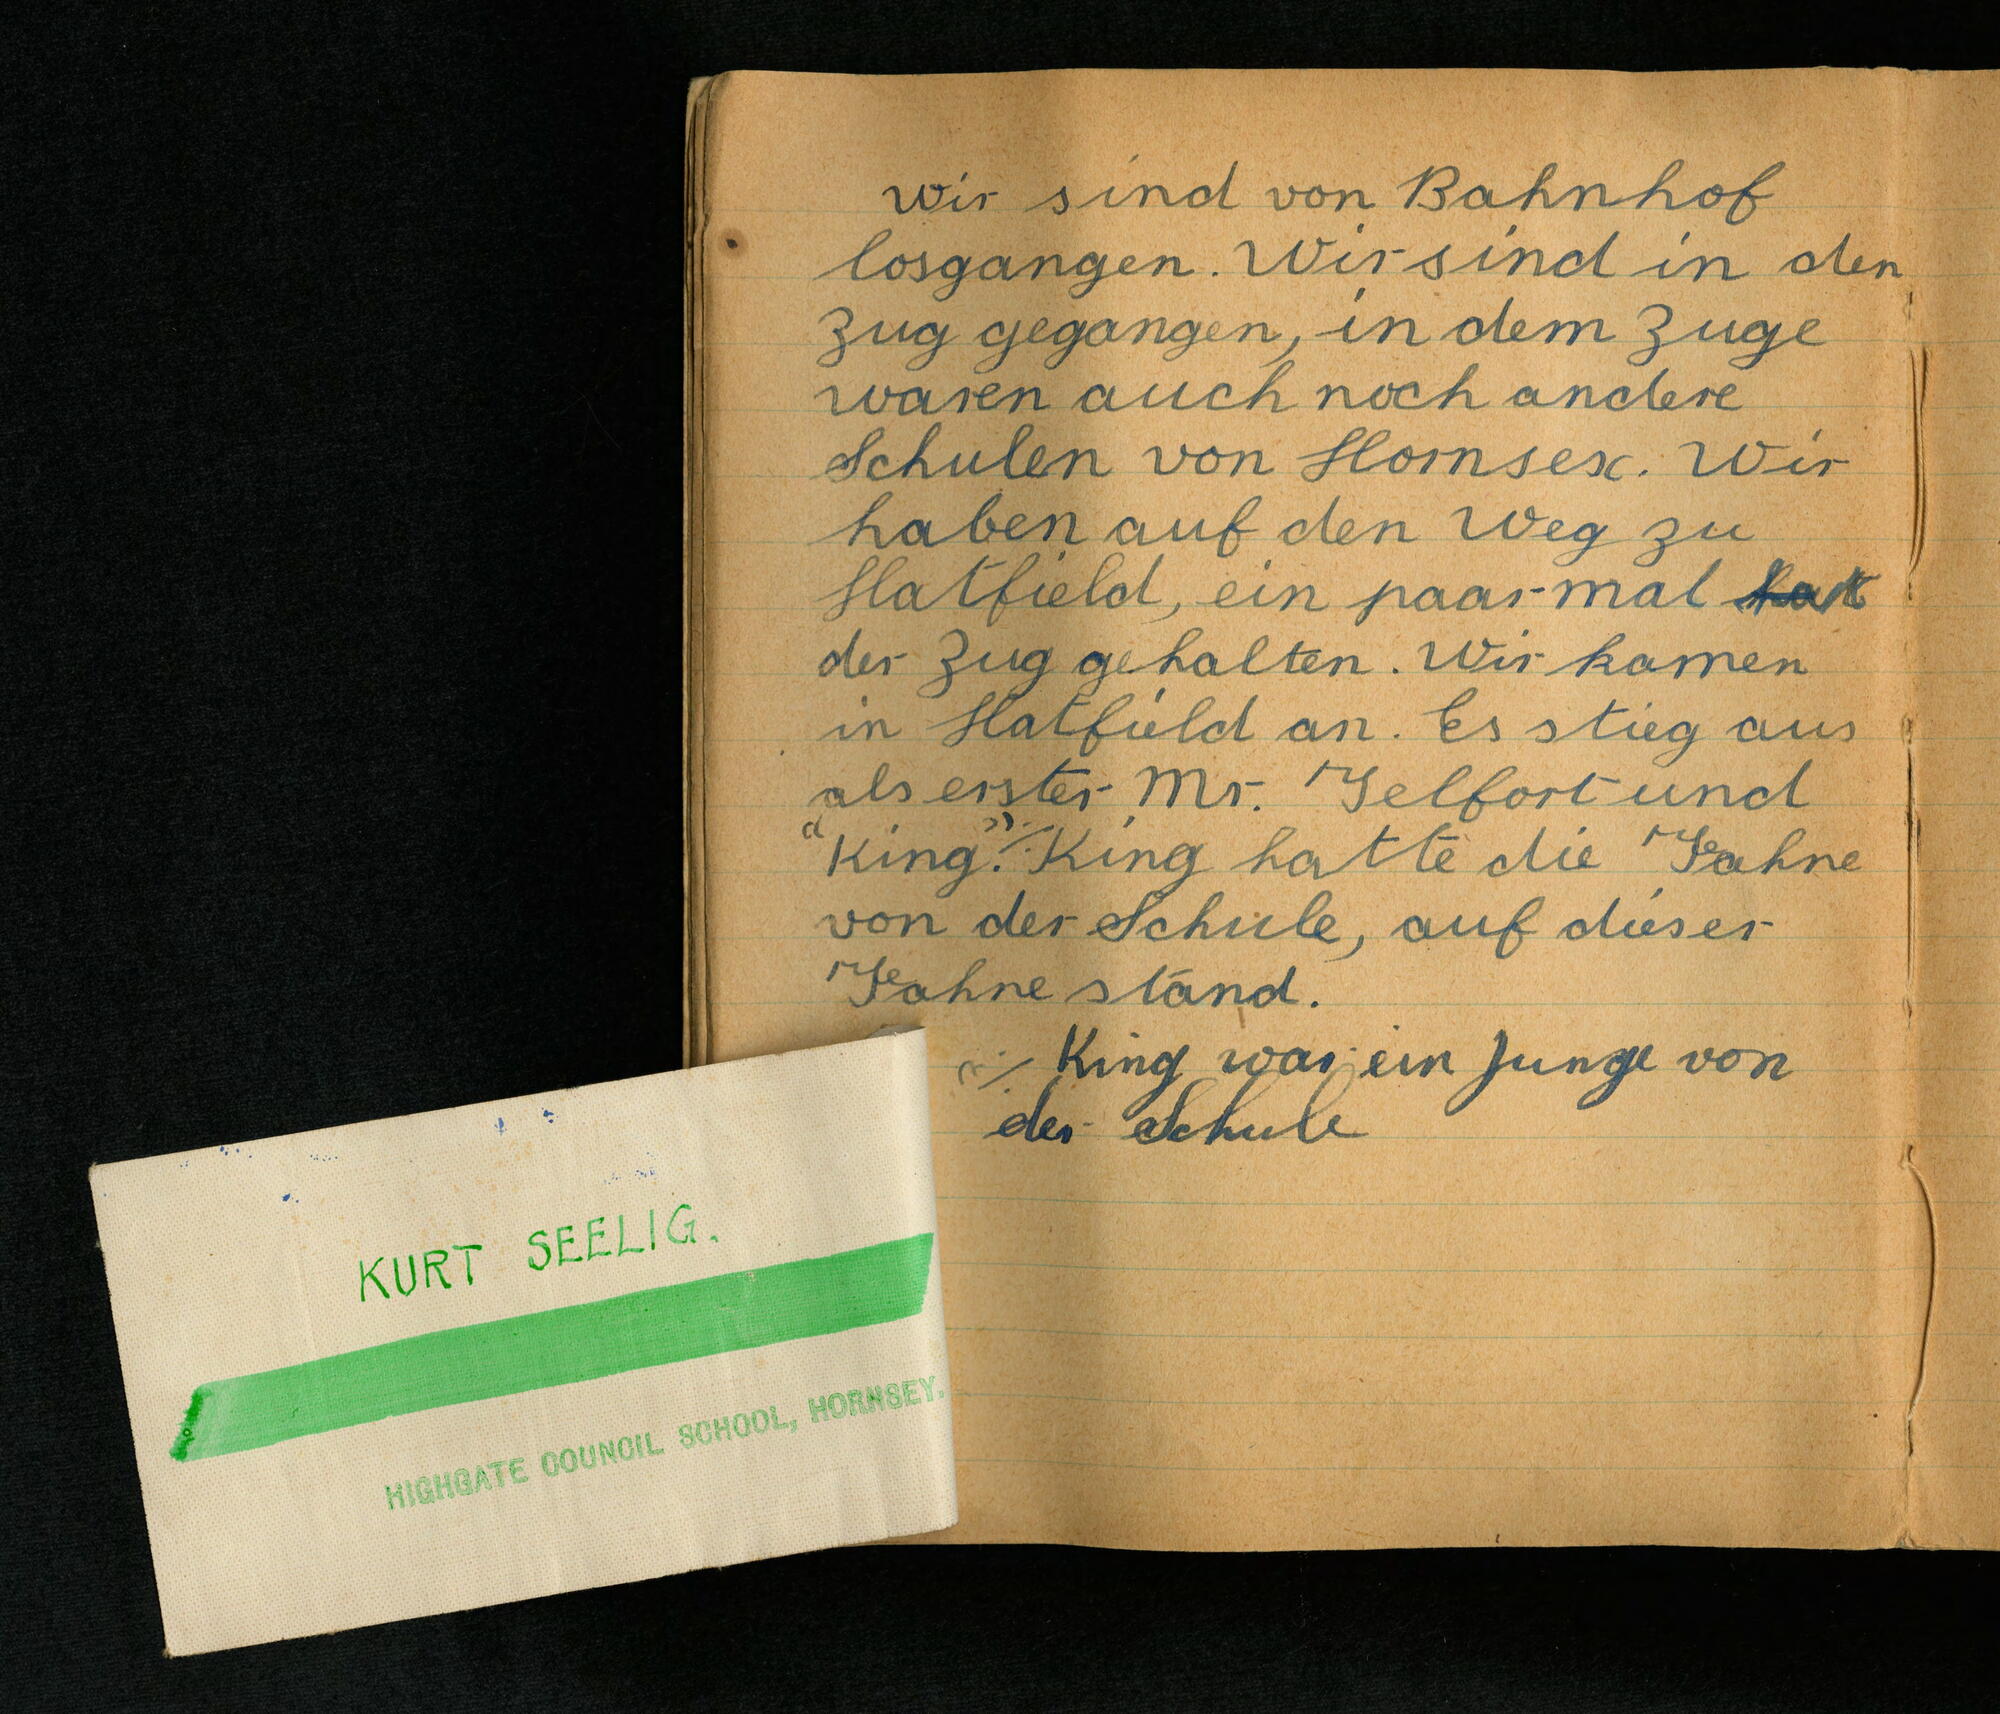 Wir sind von Bahnhof
losgangen. Wir sind in den
Zug gegangen, in dem Zuge
waren auch noch andere
Schulen von Hornsex. Wir
haben auf den Weg zu
Hatfield, ein paar mal
der Zug gehalten. Wir kamen
in Hatfield an. Es stieg aus
als erster Mr. Telfort und
"King". King hatte die Fahne
von der Schule, auf dieser
Fahne stand.
King war ein Junge von
der Schule
KURT SEELIG.
HIGHGATE COUNCIL SCHOOL, HORNSEY.